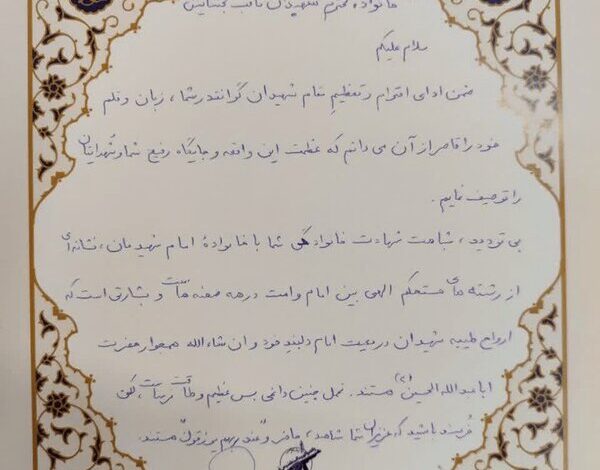 خانواده محترم شهیدان
سلام علیکم
ضمن ادای احترام و تعظیم مقام شهیدان گرانقدر شما، زبان و قلم
خود را قاصر از آن می دانم که عظمت این واقعه و جایگاه رفیع شما و شهدایتان
را توصیف نمایم.
بی تردید، شباهت شهادت خانوادگی شما با خانوادهٔ امام شهیدمان، نشانه ای
از رشته های مستحکم الهی بین امام و امت در همه صحنه هاست و بشارتی است که
ارواح طیبه شهیدان در معیت امام دلبند خود و ان شاء الله همجوار حضرت
اباعبدالله الحسین (ع) هستند. تحمل چنین داغی بس عظیم و طاقت
باشید که عزیزان شما شاهد، حاضر و "عند ربهم یرزقون" هستند.